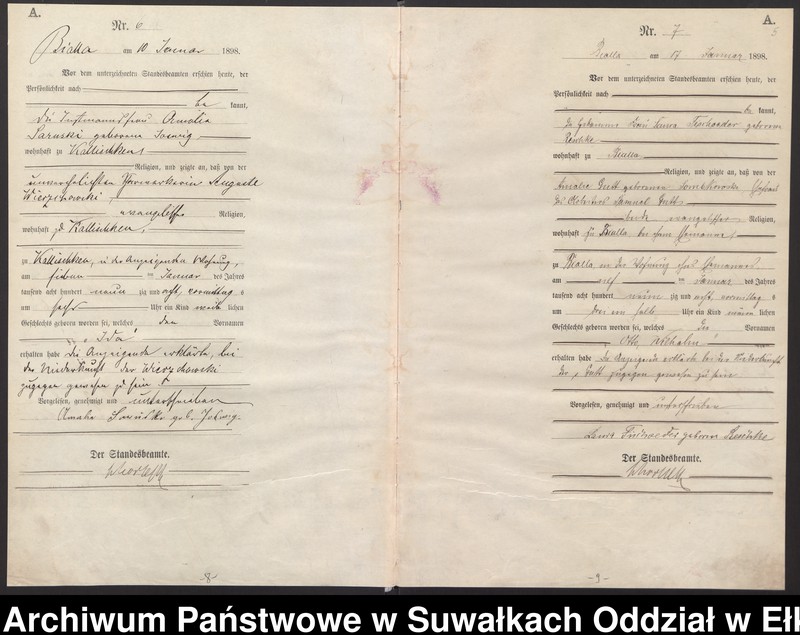 A.
Nr. 6
Bialla am 10 Januar 1898.
Vor dem unterzeichneten Standesbeamten erschien heute, der
Persönlichkeit nach
be kannt,
die Instmannsfrau Amalie
geborene
wohnhaft zu Kallischken
Religion, und zeigte an, daß von der
unverehelichten Auguste
Wierzchowski,
evangelischer Religion,
wohnhaft zu Kallischken,
zu Kallischken, in der Anzeigenden Wohnung,
am sieben ten Januar des Jahres
tausend acht hundert neun zig und acht, vormittag s
um sechs Uhr ein Kind weib lichen
Geschlechts geboren worden sei, welches den Vornamen
"Ida"
erhalten habe die Anzeigende erklärte, bei
der Niederkunft der Wierzchowski
zugegen gewesen zu sein
Vorgelesen, genehmigt und unterschrieben
Amalie geb.
Der Standesbeamte.
-8-
A.
Nr. 7
5
Bialla am Januar 1898.
Vor dem unterzeichneten Standesbeamten erschien heute, der
Persönlichkeit nach
be kannt,
die Hebamme Frau geborene
wohnhaft zu Bialla
Religion, und zeigte an, daß von der
Amalie geborenen Ehefrau
des Samuel
beide evangelischer Religion,
wohnhaft zu Bialla bei ihrem Ehemanne
zu Bialla in der Wohnung ihres Ehemannes
am elf ten Januar des Jahres
tausend acht hundert neun zig und acht, vormittag s
um ein halb Uhr ein Kind männ lichen
Geschlechts geboren worden sei, welches die Vornamen
"Otto, Wilhelm"
erhalten habe die Anzeigende erklärte bei der Niederkunft
der zugegen gewesen zu sein
Vorgelesen, genehmigt und unterschrieben
geborene
Der Standesbeamte.
-9-
Archiwum Państwowe w Suwałkach Oddział w Ełk